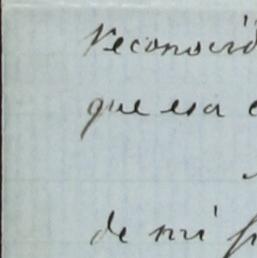 reconocido
que esa
de mi